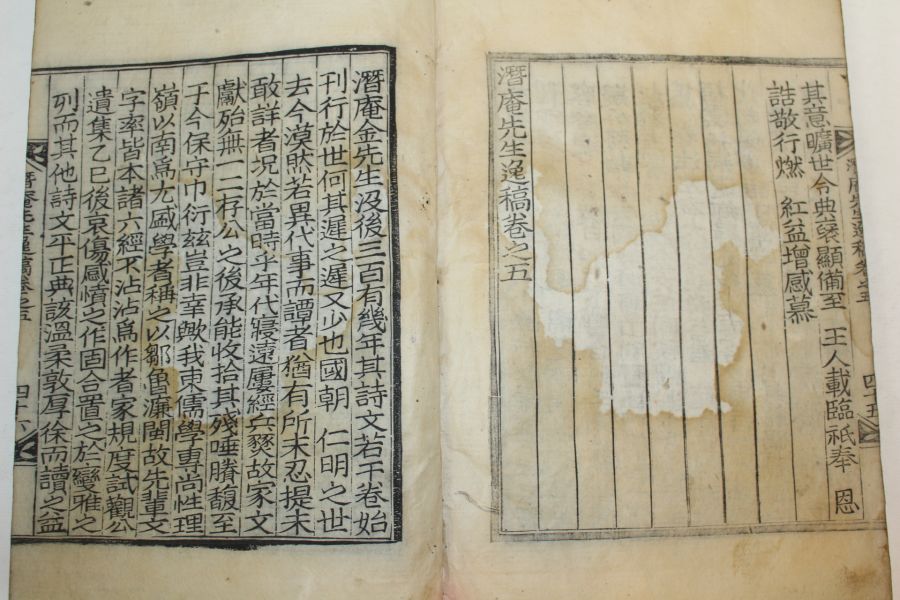 潛庵先生逸稿卷之五
四十五
其意曠世令典褒顯備至 王人載臨祇奉 恩
誥敬行燃 紅益增感慕
潛庵先生逸稿卷之五
潛庵金先生沒後三百有幾年其詩文若干卷始
刊行於世何其遲之遲又少也國朝 仁明之世
去今漠然若異代事而譚者猶有所未忍提未
敢詳者況於當時乎年代寖遠屢經兵燹故家文
獻殆無一二存公之後承能收拾其殘唾賸馥至
于今保守巾衍玆豈非幸歟我東儒學專尚性理
嶺以南爲尤盛學者稱之以鄒魯濂閩故先輩文
字率皆本諸六經不沾沾爲作者家規度試觀公
遺集乙巳後哀傷感憤之作固合置之於變雅之
列而其他詩文平正典該溫柔敦厚徐而讀之益
潛庵先生逸稿卷之五
四十六